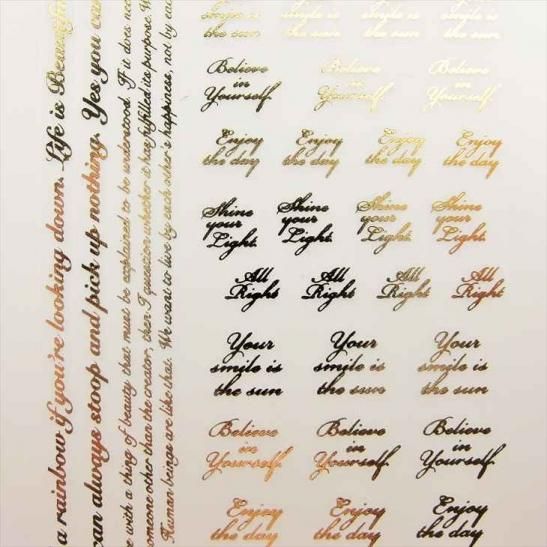 a rainbow if you're looking down. Life is Beautiful
can always stoop and pick up nothing. Yes you can
e with a thing of beauty that must be explained to be understood. If it does not
someone other than the creator, then I question whether it has fulfilled its purpose. W
Human beings are like that. We want to live by each other's happiness, not by eac
smile is smile is smile is smile is
the sun the sun the sun the sun
Believe Believe Believe
in in in
Yourself. Yourself. Yourself.
Enjoy Enjoy Enjoy Enjoy
the day the day the day the day
Shine Shine Shine Shine
your your your your
Light. Light. Light. Light.
All All All All
Right Right Right Right
Your Your Your
smile is smile is smile is
the sun the sun the sun
Believe Believe Believe
in in in
Yourself. Yourself. Yourself.
Enjoy Enjoy Enjoy
the day the day the day